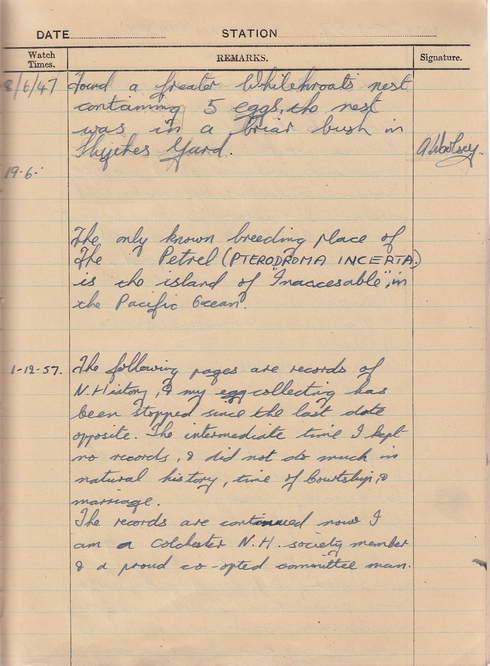 DATE STATION
Watch Times. REMARKS. Signature.
8/6/47 Found a Greater Whitethroats nest
containing 5 eggs, the nest
was in a briar bush in
Yard. A Woolsey.
19.6.
The only known breeding place of
The Petrel (PTERODROMA INCERTA)
is the island of "Inaccesable", in
the Pacific Ocean.
1-12-57. The following pages are records of
N. History, & my egg collecting has
been stopped since the last date
opposite. The intermediate time I kept
no records, & did not do much in
natural history, time of Courtship, &
marriage.
The records are continued now I
am a Colchester N.H. society member
& a proud co-opted committee man.